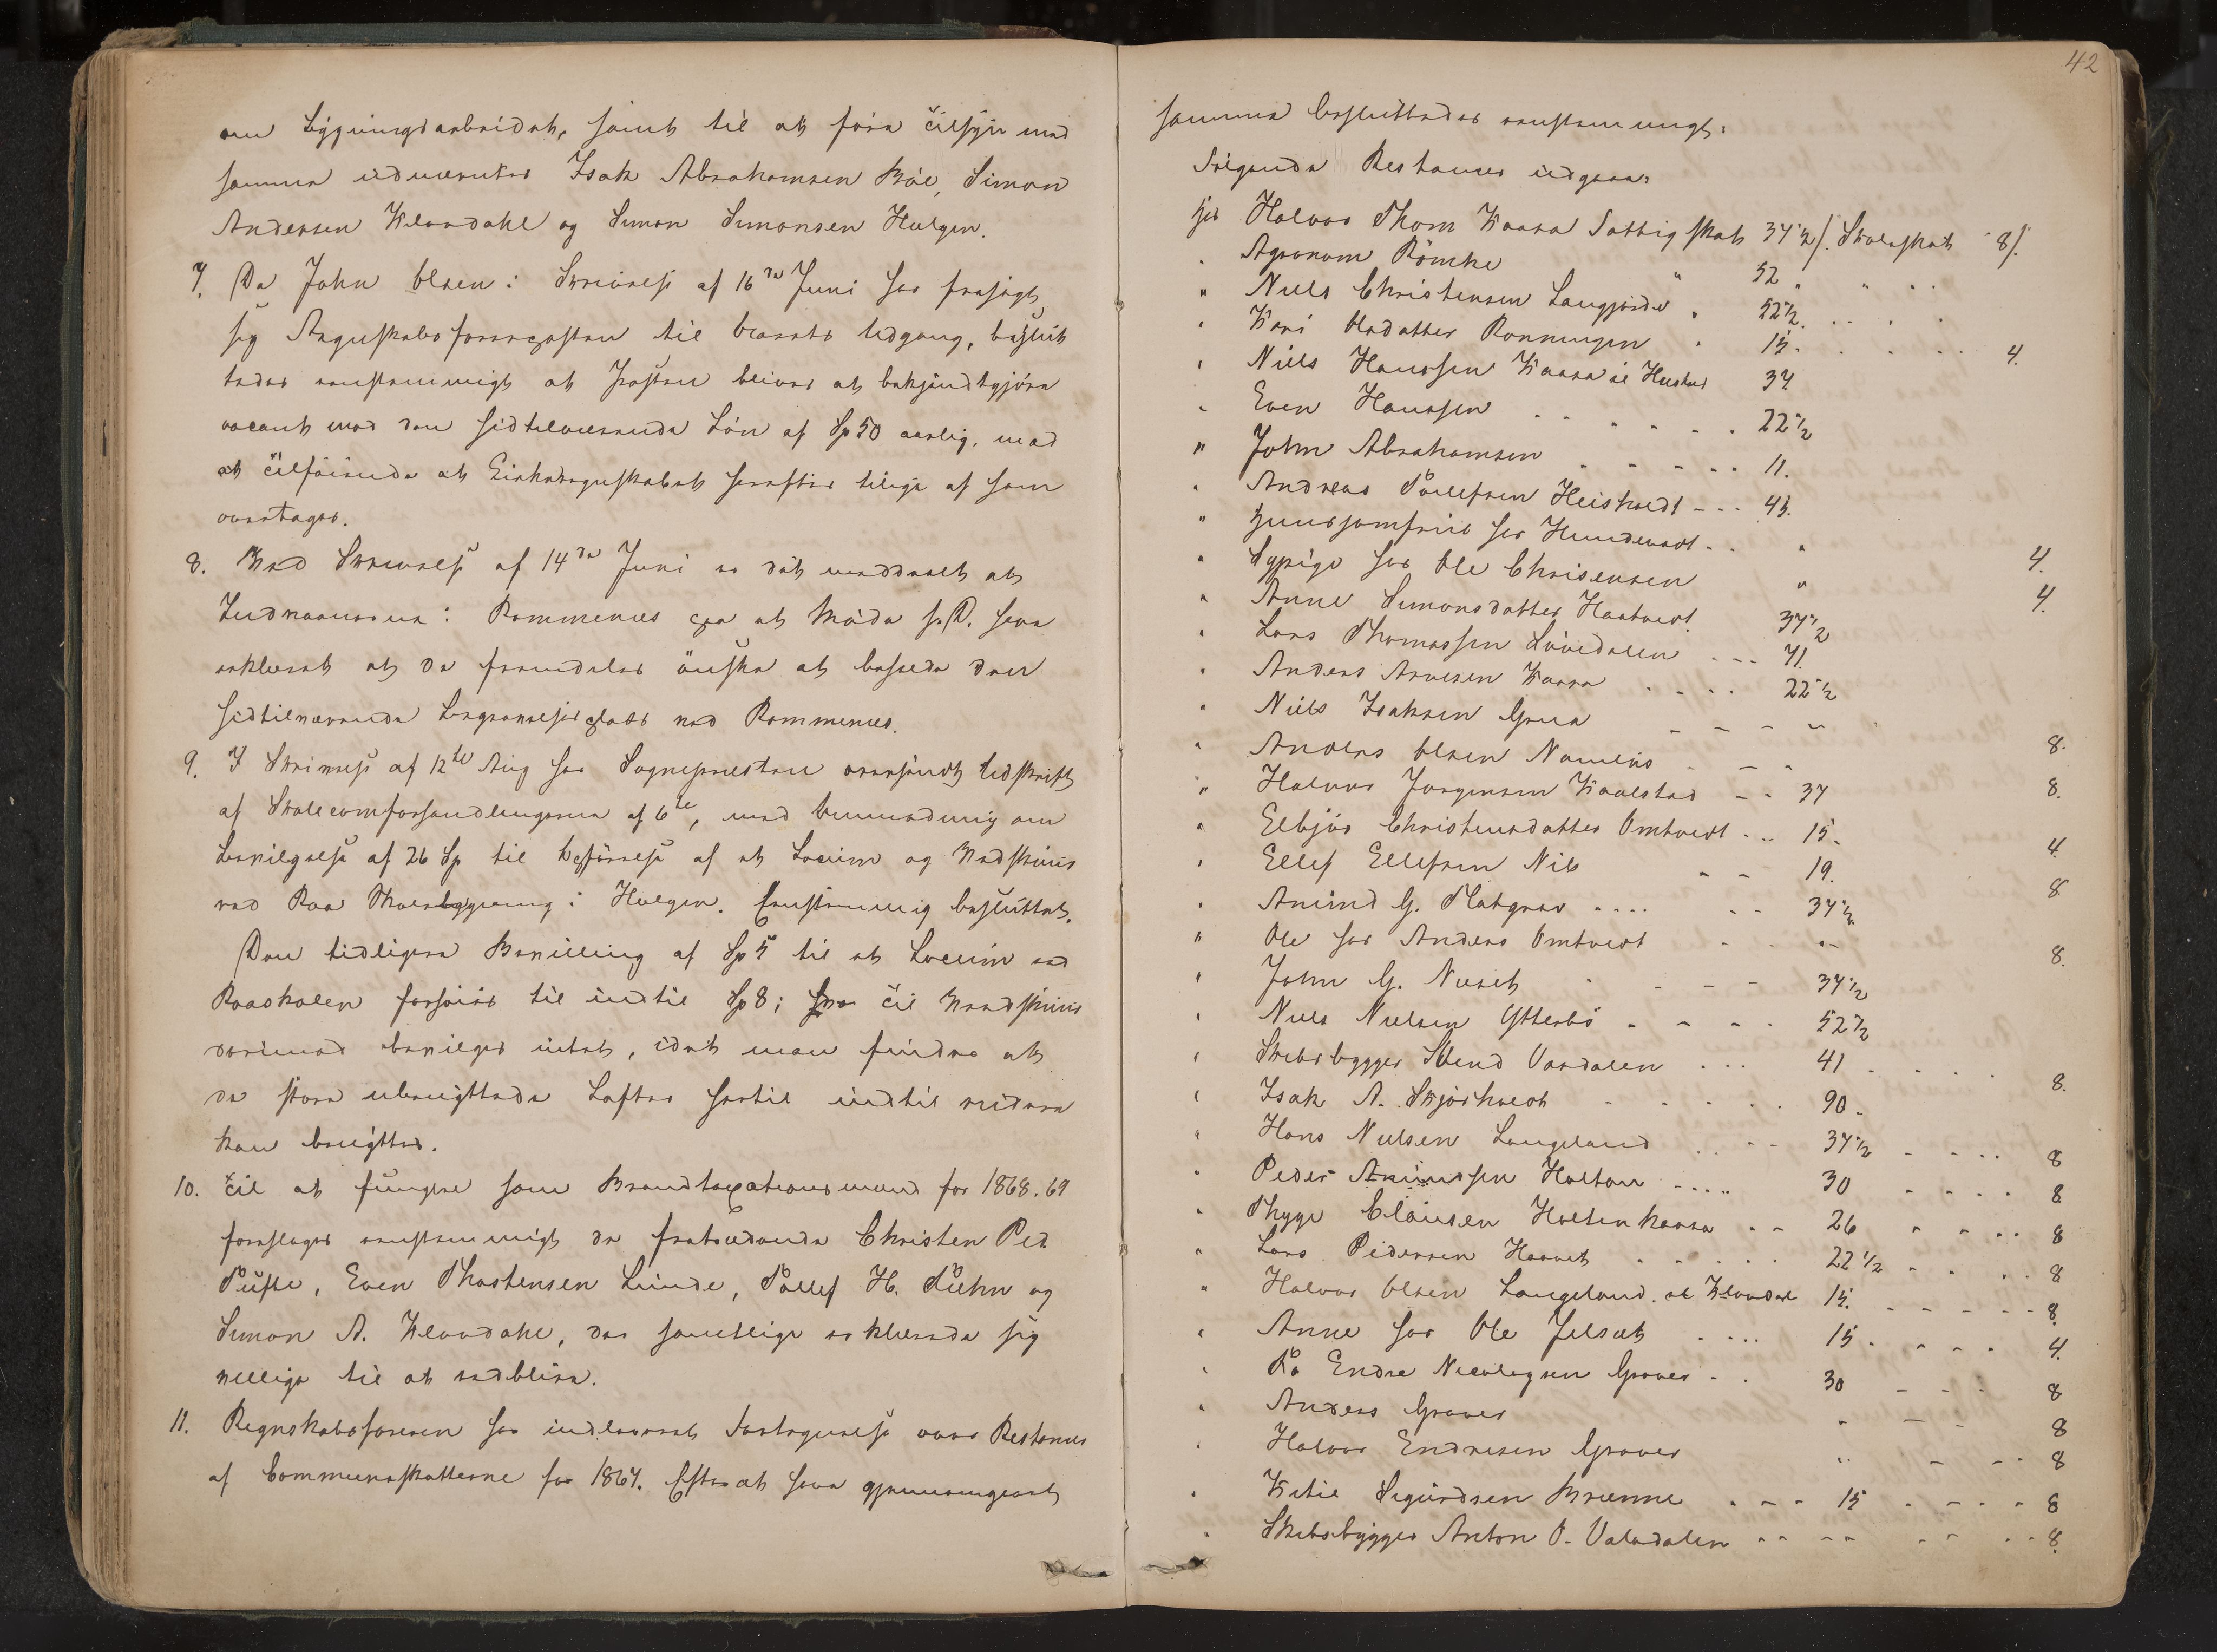 om Bygningsarbeidet, samt til at føre Tilsyn med
samme udnævntes Isak Abrahamsen Bøe, Simon
Andersen Kleondahl og Simon Simonsen Hulgen.
7. Da John Olsen i Skrivelse af 16de Juni har frasagt
sig Regnskabsførerposten til Aarets Udgang, beslut
tedes eenstemmigt at Posten bliver at bekjendtgjøre
vacant med den hidtilværende Løn af Sp 50 aarlig, med
at Tilføiende at Kirkeregnskabet herefter tilige af ham
overtages.
8. Ved Skrivelse af 14de Juni er det meddeelt at
Indvaanerne i Rommenæs paa et Møde s. D. have
erklæret at de fremdeles ønske at beholde den
hidtilværende Begravelsesplads ved Rommenæs.
9. I Skrivelse af 12te Aug har Sognepræsten oversendt Udskrift
af Skolecomforhandlingerne af 6te, med Anmodning om
Bevilgelse af 26 Sp til Opførelse af et Locum og Vedskuur
ved Roa Skolebygning i Hulgen. Eenstemmig besluttet.
Den tidligere Bevilling af Sp 5 til et Locum ved
Roaskolen forhøies til indtil Sp 8; til Vedskuur
derimod bevilges intet, idet man finder at
de store ubenyttede Lofter hertil indtil videre
kan benyttes.
10. Til at fungere som Brandtaxationsmænd for 1868.69
foreslages eenstemmigt de fratrædende Christen Ped
Tufte, Even Thostensen Lunde, Tollef H. Tuhn og
Simon A. Kleondahl, der samtlige erklærede sig
villige til at vedblive.
11. Regnskabsføreren har indleveret Fortegnelse over Restancer
af Communeskatterne for 1867. Efter at have gjennemgaaet
42
samme besluttedes eenstemmigt:
Følgende Restancer udgaar:
hos Halvor Thom Kaasa Fattigskat 37½ s. Skoleskat 8 s.
" Agronom Römcke " 52 " "
" Niels Christensen Langjordet " 52½
" Kari Olsdatter Ronningen " 15. 4.
" Niels Hanssen Kaasa 37
" Even Hanssen 22½
" John Abrahamsen 11.
" Andreas Tollefsen Heisholdt 45.
" Huusjomfrue hos Hundevadt " 4.
" Sypige hos Ole Chrisensen " 4.
" Anne Simonsdatter Haatvedt 37½
" Lars Thomassen Lövedalen 71.
" Anders Arnesen Kaasa 22½
" Niels Isaksen Grua " 8.
" Anders Olsen Namløs " 8.
" Halvor Jorgensen Kaalstad 37
" Elbjör Christensdatter Omtvedt 15. 4.
" Ellef Ellefsen Nib 19. 8.
" Amund G. Platgrav 37½
" Ole hos Anders Omtvedt " 8.
" John G. Næseth 37½
" Niels Nielsen Ytterbö 52½
" Skibsbygger Svend Vardalen 41 8.
" Isak A. Skjørholdt 90.
" Hans Nielsen Langeland 37½ 8
" Peder Amundsen Holtan 30 8
" Thyge Clausen Holtenkaasa 26 8
" Lars Pedersen Haaveth 22½ 8
" Halvor Olsen Langeland 15. 8.
" Anne hos Ole Jelseth 15. 4.
" Endre Nicolaysen Graver 30 8
" Anders Graver " 8
" Halvor Endresen Graver " 8
" Kitil Sigurdsen Brænne 15 8
" Skibsbygger Anton O. Valedalen 8.